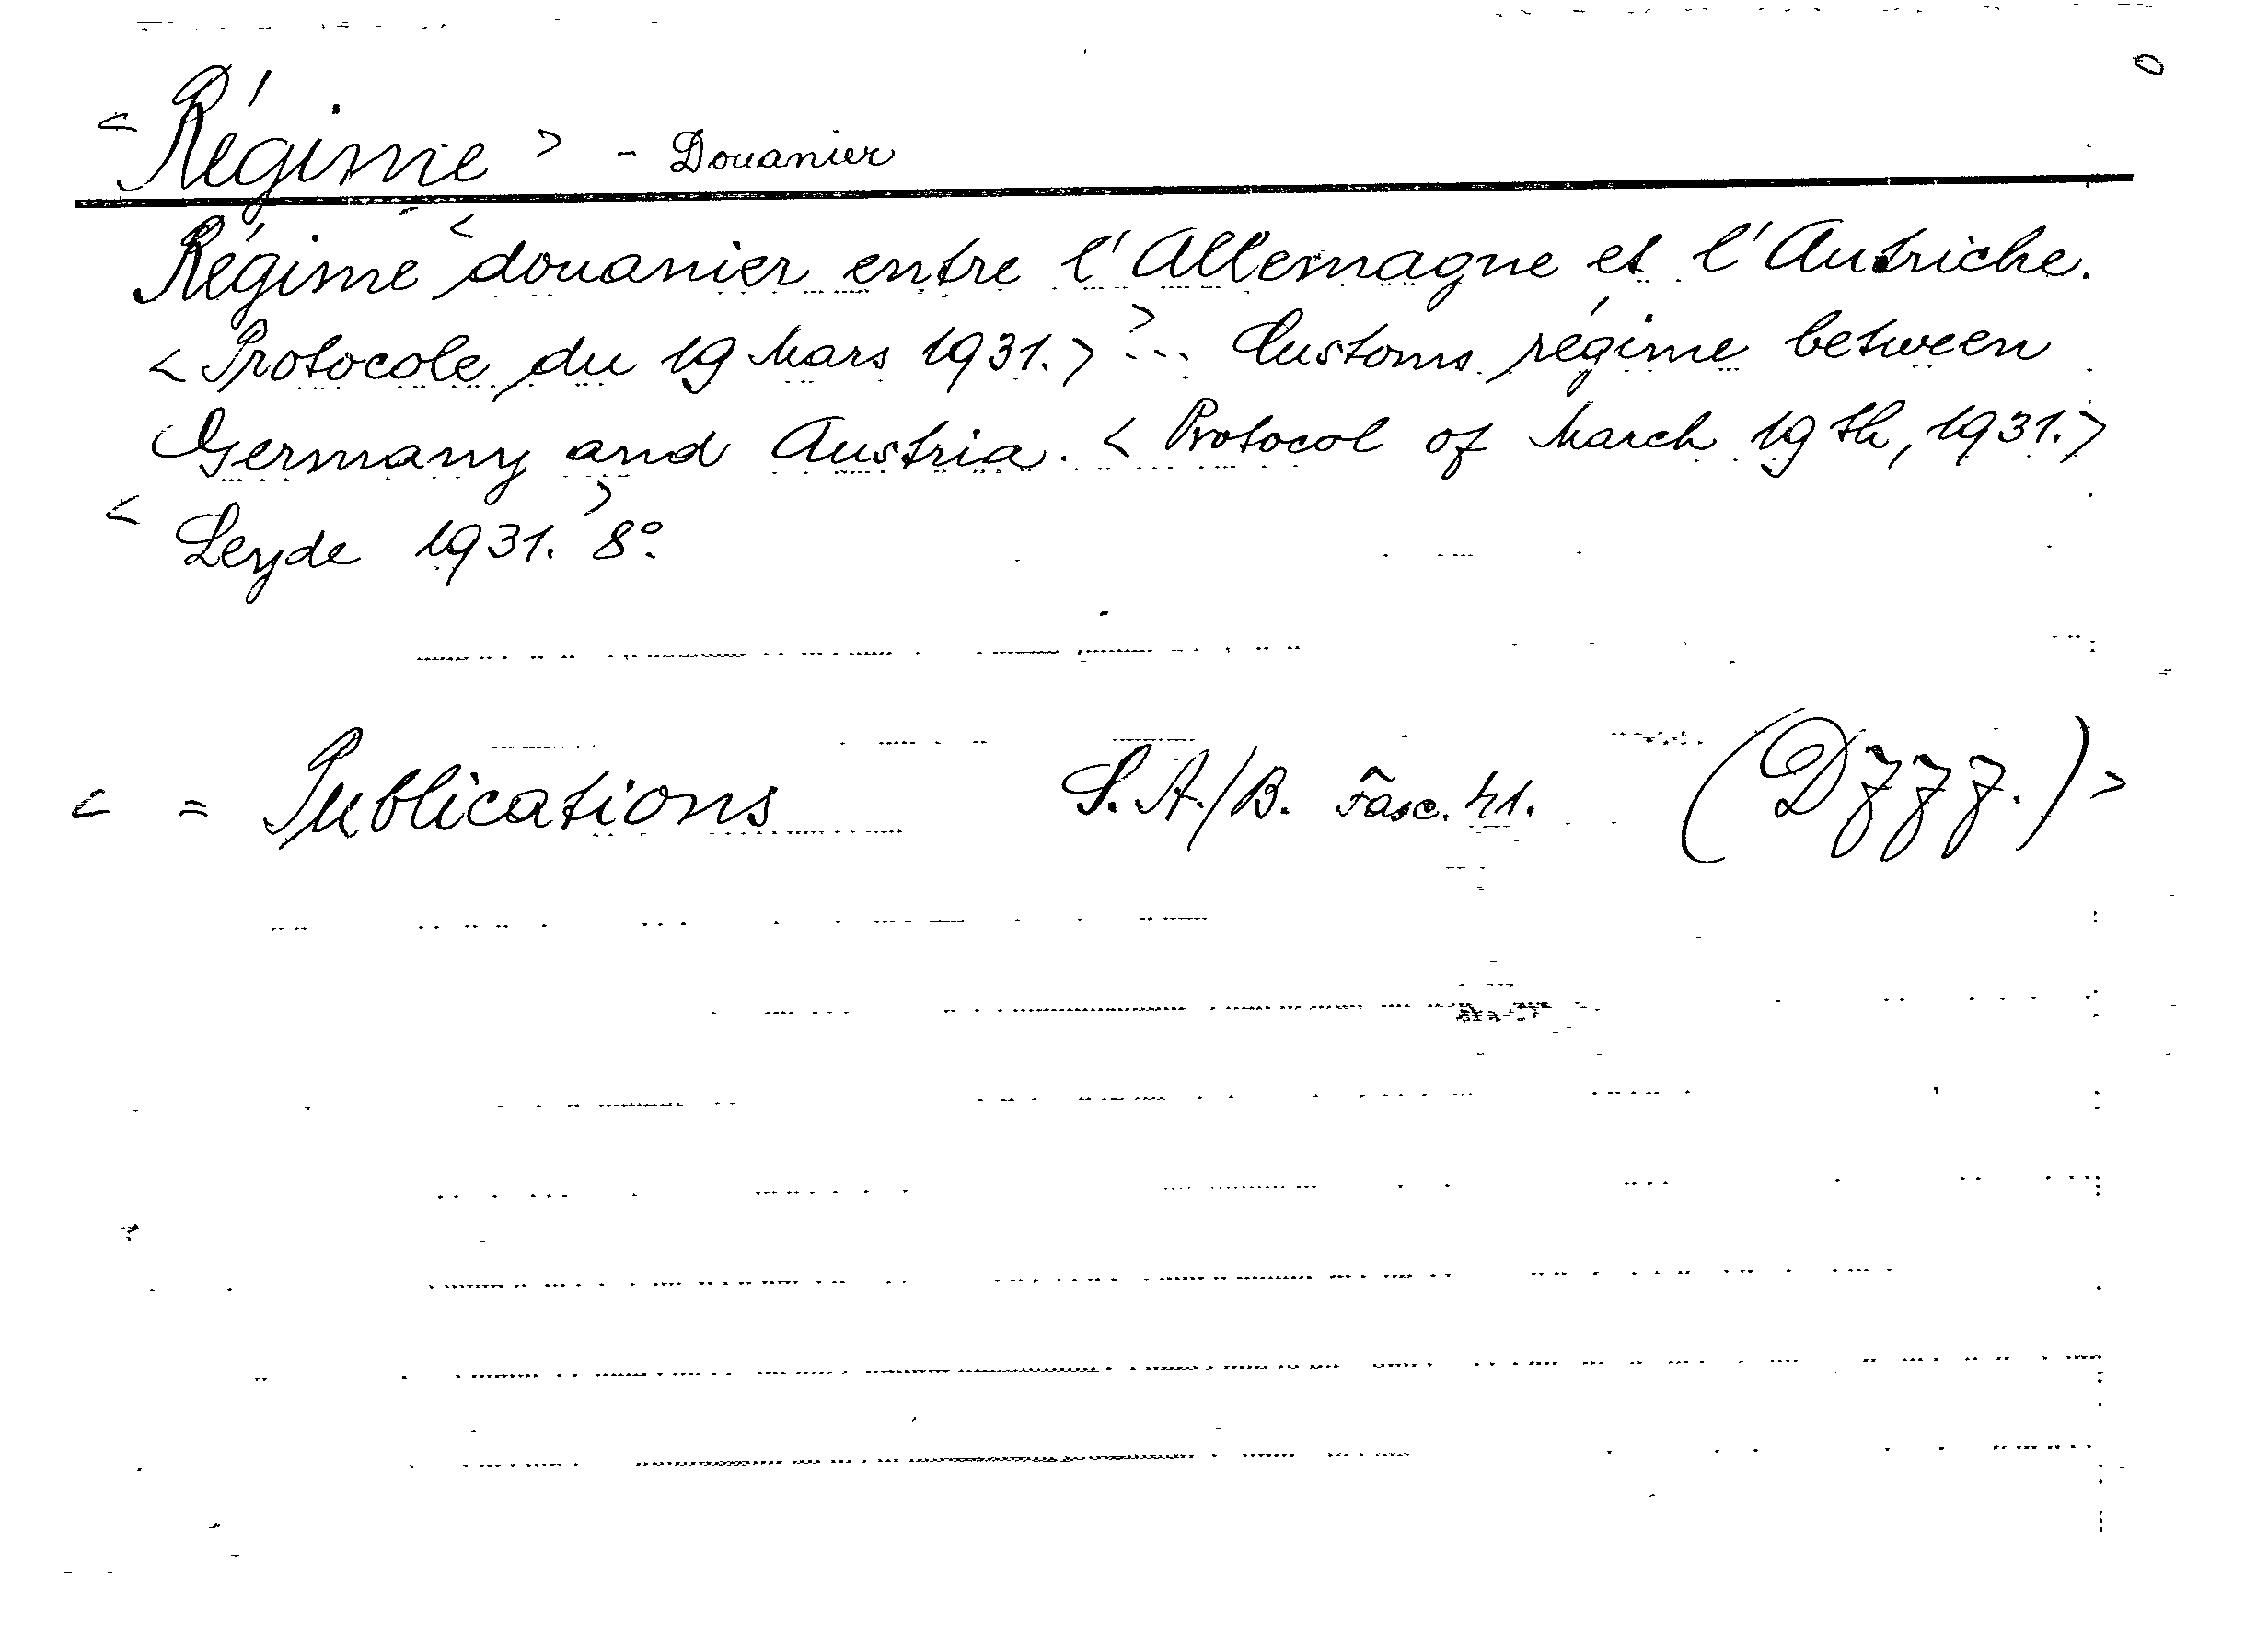 < Régime > - Douanier
Régime < douanier entre l'Allemagne et l'Autriche.
< Protocole du 19 Mars 1931. > > ... Customs régime between
Germany and Austria. < Protocol of March 19th, 1931. >
< Leyde 1931. > 8°.
< = Publications S. A./B. Fasc. 41. (Dzzz.) >